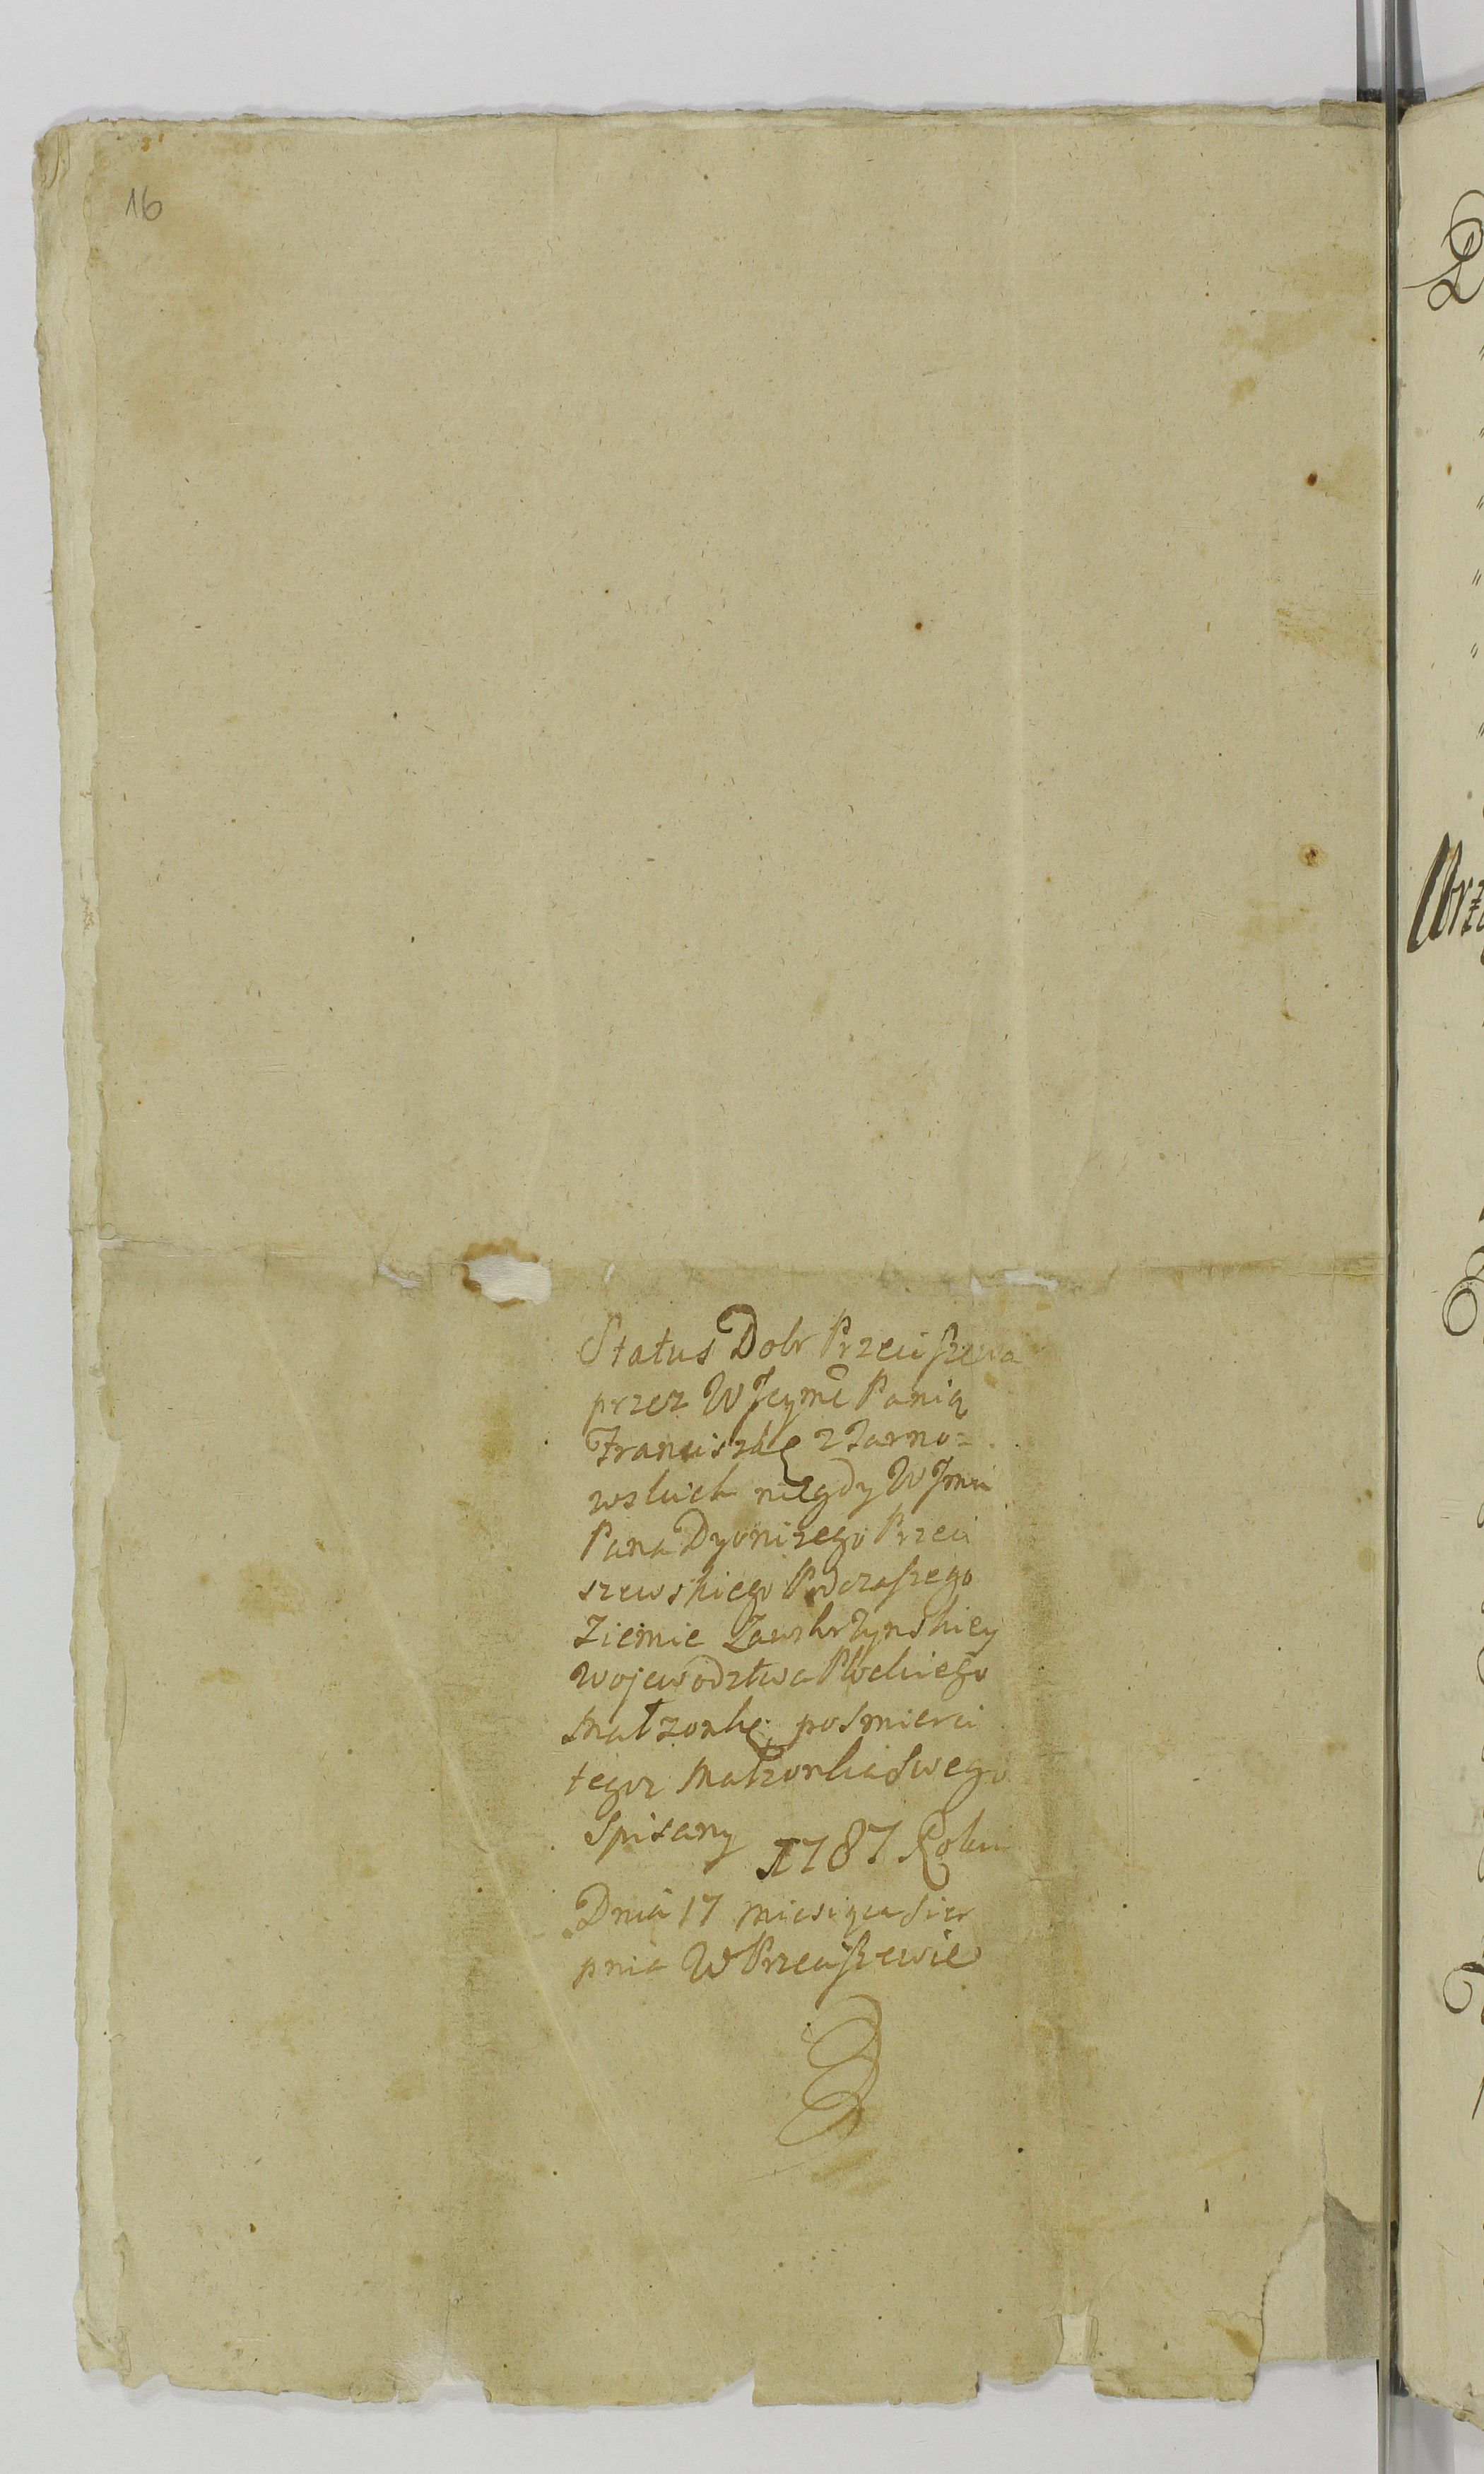 16
Status Dobr Przeciszewa
przez WJeymć Panią
Franciszkę z Żarno=
wskich niegdy WJmci
Pana Dyonizego Przeci
szewskiego Podczaszego
Ziemie Zawskrzynskiey
Wojewodztwa Płockiego
Małzonkę, po smierci
tegoz Małzonka Swego
Spisany 1787 Roku
Dnia 17 Miesiąca Sier
pnia W Przeciszewie